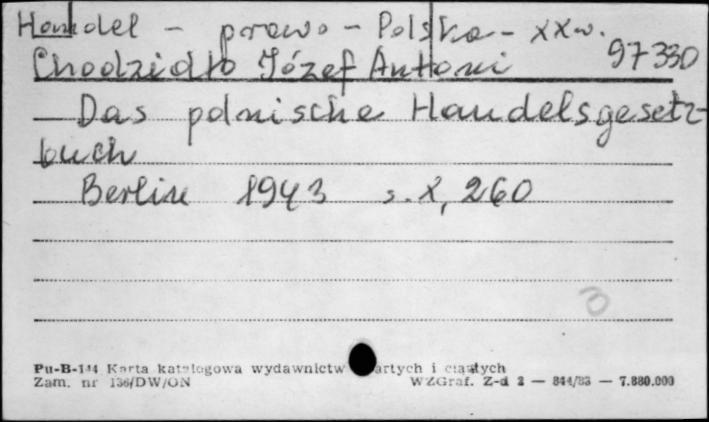 Handel - prawo - Polska - XX w.
Chodzidło Józef Antoni 97330
Das polnische Handelsgesetz-
buch
Berlin 1943 s. X, 260
Pu-B-144 Karta katalogowa wydawnictw zwartych i ciągłych
Zam. nr 136/DW/ON WZGraf. Z-d 2 — 844/83 — 7.880.000